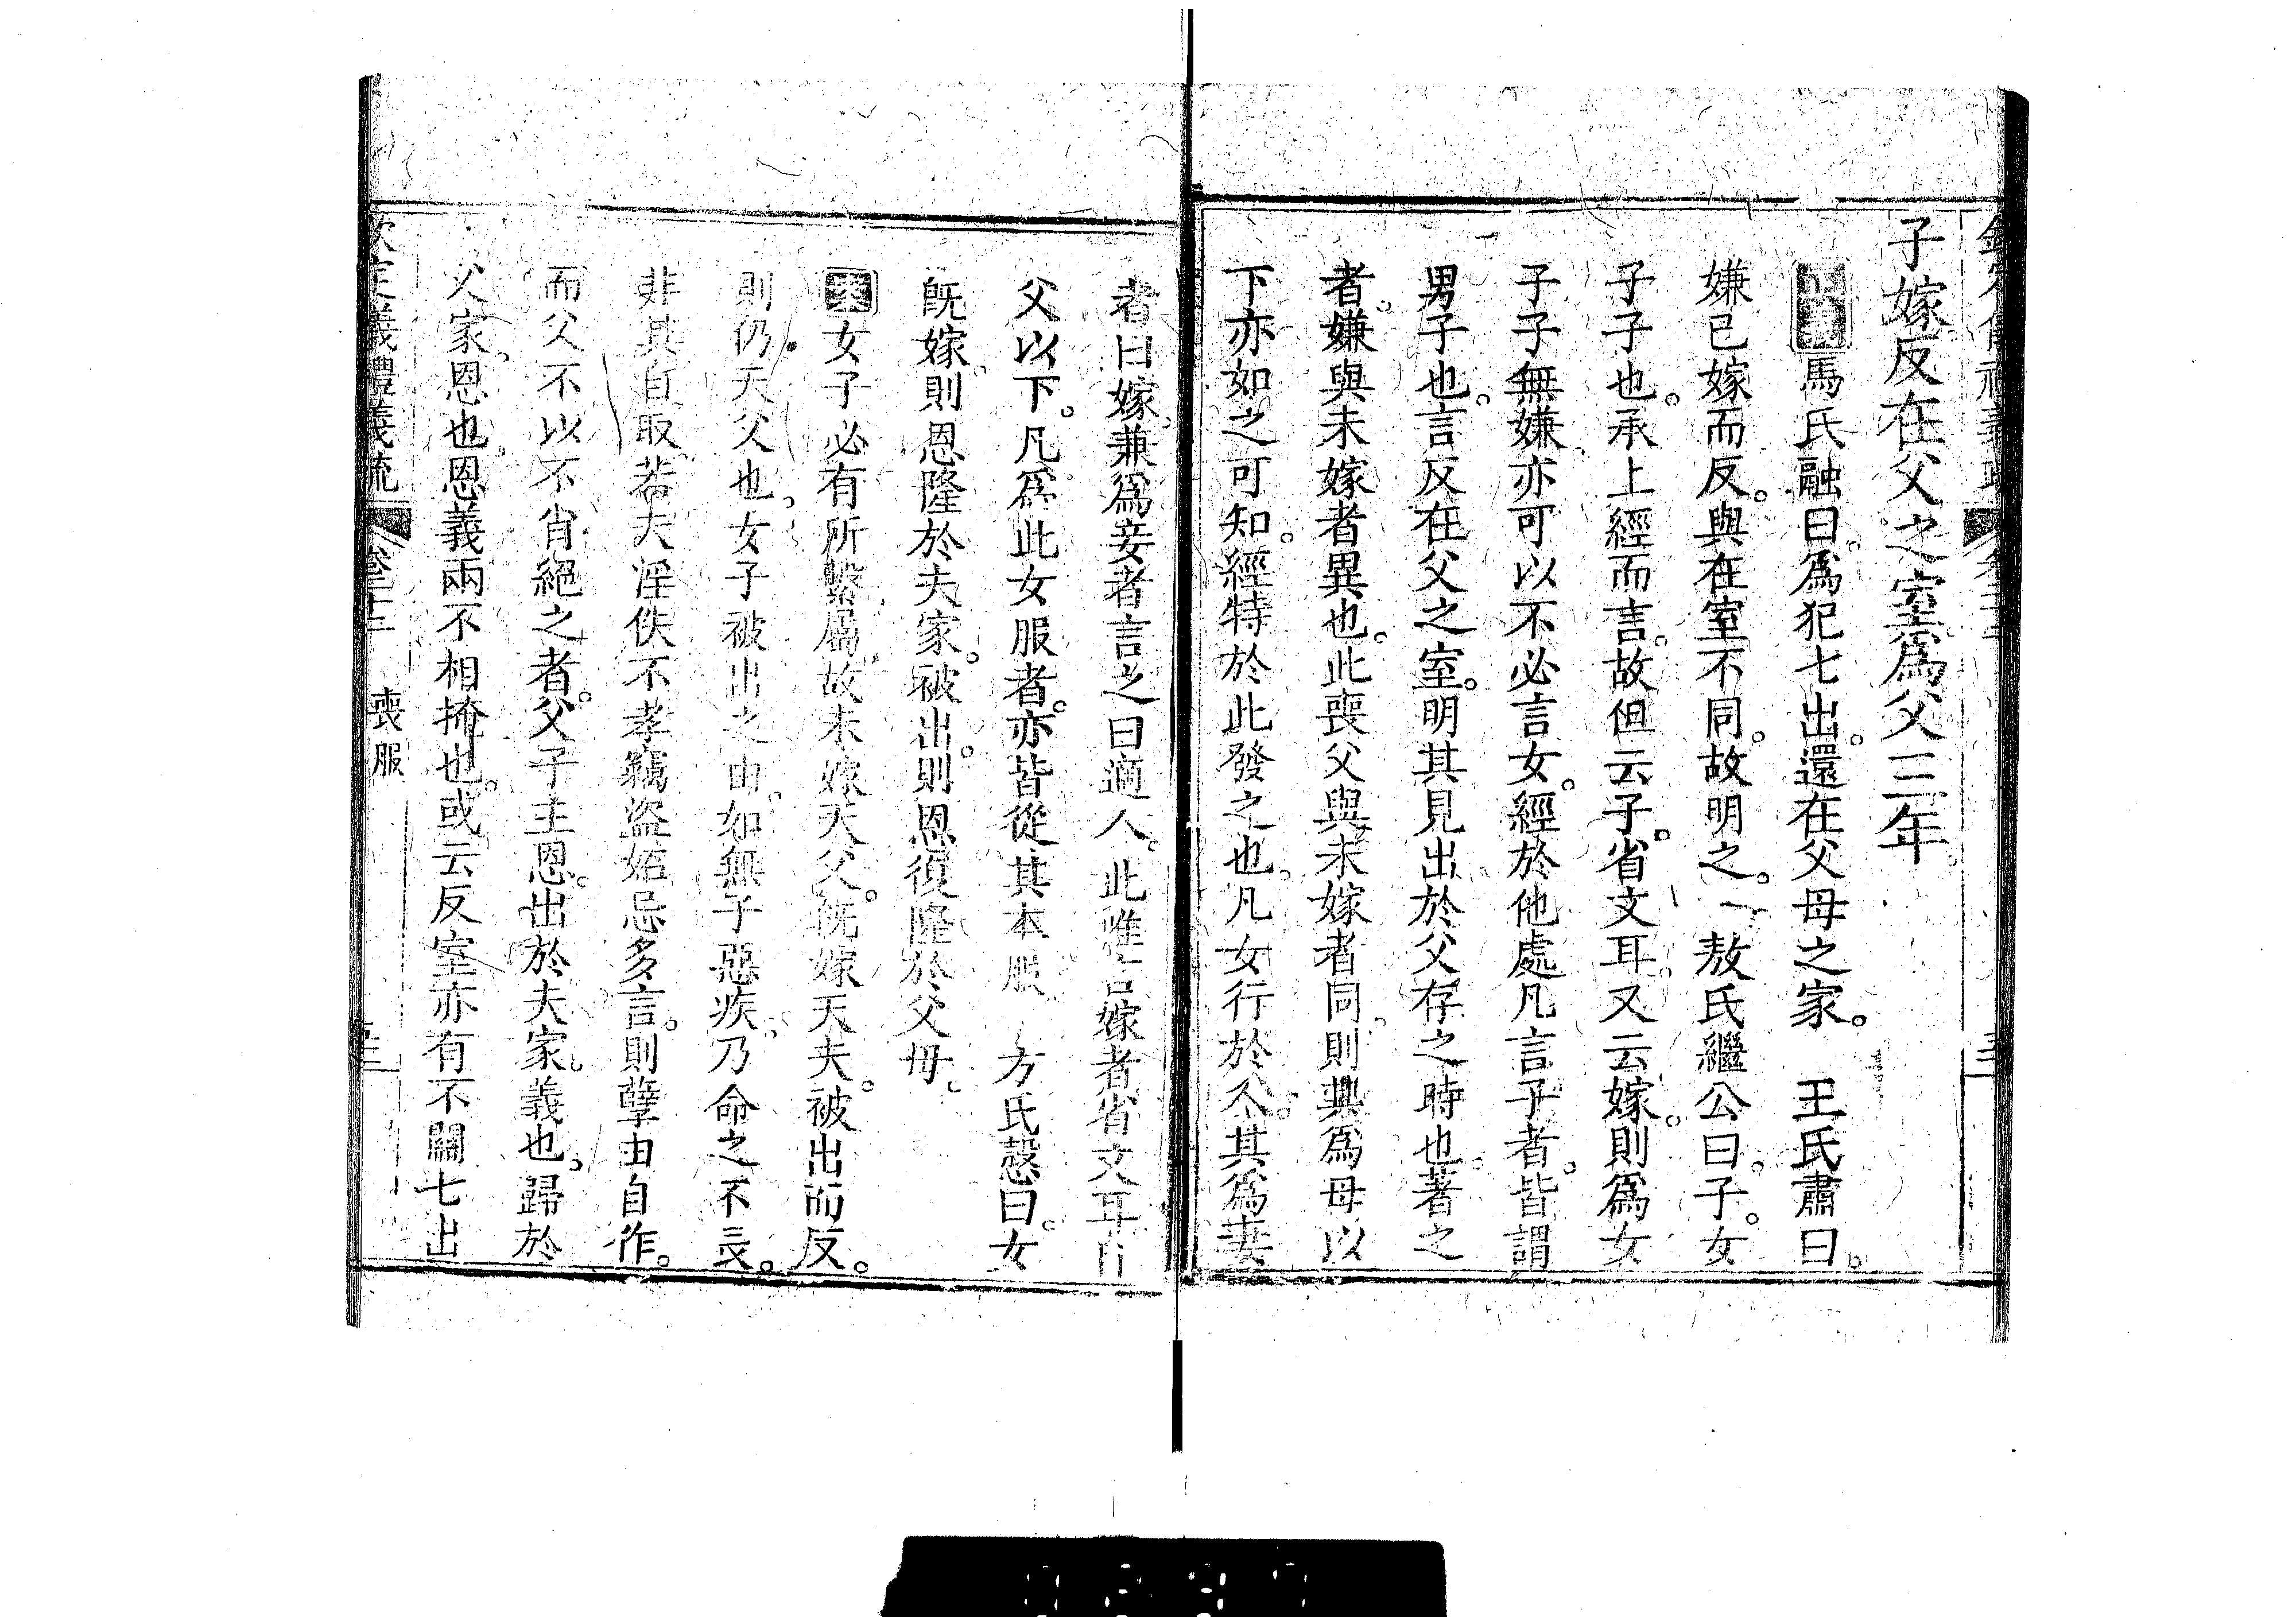 子嫁反在父之室爲父三年
馬氏融曰爲犯七出還在父母之家　王氏肅曰
嫌已嫁而反與在室不同故明之　敖氏繼公曰子女
子子也承上經而言故但云子省文耳又云嫁則爲女
子子無嫌亦可以不必言女經於他處凡言子者皆謂
男子也言反在父之室明其見出於父存之時也著之
者嫌與未嫁者異也此喪父與未嫁者同則其爲母以
下亦如之可知經特於此發之也凡女行於人其爲妻
者曰嫁兼爲妾者言之曰適人此惟言嫁者省文耳自
父以下凡爲此女服者亦皆從其本服　方氏慤曰女
旣嫁則恩隆於夫家被出則恩復隆於父母
案女子必有所繫屬故未嫁天父旣嫁天夫被出而反
則仍天父也女子被出之由如無子惡疾乃命之不長
非其自取若夫淫佚不孝竊盜妬忌多言則孽由自作
而父不以不肖絕之者父子主恩出於夫家義也歸於
父家恩也恩義兩不相掩也或云反室亦有不關七出
欽定義禮義疏　卷二十二　喪服